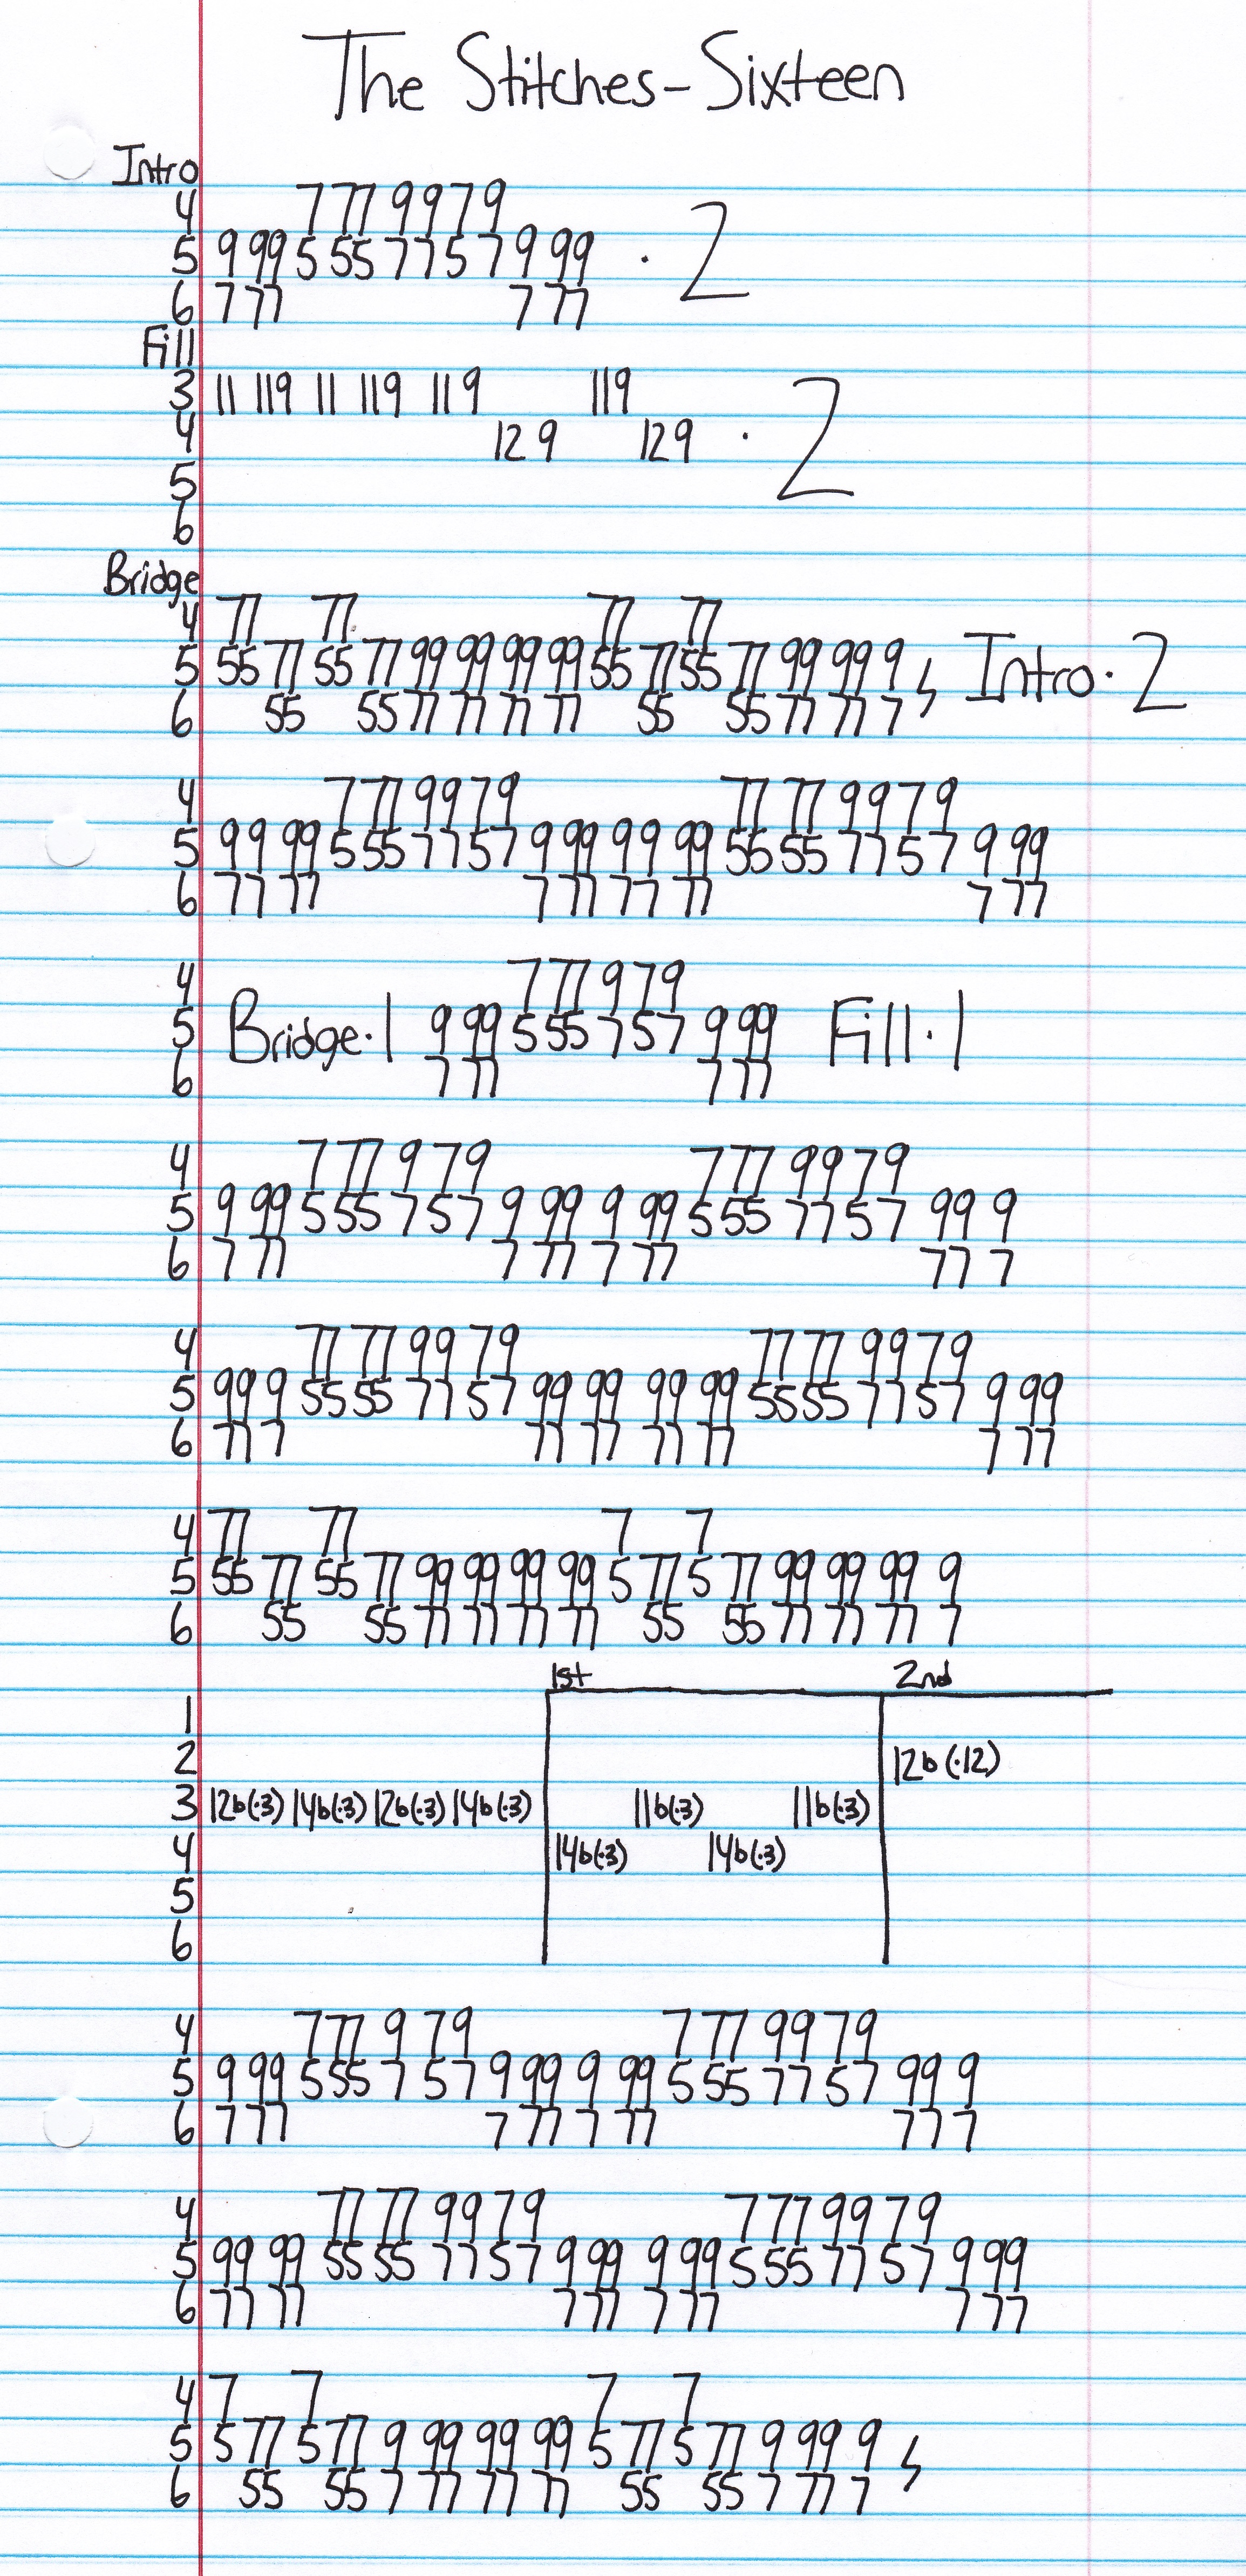 The Stitches-Sixteen
Intro
4 7 77 9 9 7 9
5 9 99 5 55 7 7 5 7 9 99 · 2
6 7 77 7 77
Fill
3 11 119 11 119 11 9 119
4 12 9 129 · 2
5
6
Bridge
4 77 77 77 77
5 55 77 55 77 99 99 99 99 55 77 55 77 99 99 9 Intro · 2
6 55 55 77 77 77 77 55 55 77 77 7
4 7 77 99 79 77 77 9 9 7 9
5 9 9 99 5 55 77 57 9 99 9 9 99 55 55 77 57 9 99
6 77 77 7 77 77 77 7 77
4 7 77 9 79
5 Bridge · 1 9 99 5 55 7 57 9 99 Fill · 1
6 7 77 7 77
4 7 77 9 79 7 77 99 79
5 9 99 5 55 7 57 9 99 9 99 5 55 77 57 99 9
6 7 77 7 77 7 77 77 7
4 77 77 99 79 77 77 99 79
5 99 9 55 55 77 57 99 99 99 99 55 55 77 57 9 99
6 77 7 77 77 77 77 7 77
4 77 77 7 7
5 55 77 55 77 99 99 99 99 5 77 5 77 99 99 99 9
6 55 55 77 77 77 77 55 55 77 77 77 7
1st 2nd
1
2 12b(·12)
3 12b(·3) 14b(·3) 12b(·3) 14b(·3) 11b(·3) 11b(·3)
4 14b(·3) 14b(·3)
5
6
4 7 77 9 79 7 77 99 79
5 9 99 5 55 7 57 9 99 9 99 5 55 77 57 99 9
6 7 77 7 77 7 77 77 7
4 77 77 99 79 7 77 99 79
5 99 99 55 55 77 57 9 99 9 99 5 55 77 57 9 99
6 77 77 7 77 7 77 7 77
4 7 7 7 7
5 5 77 5 77 9 99 99 99 5 77 5 77 9 99 9
6 55 55 7 77 77 77 55 55 7 77 7